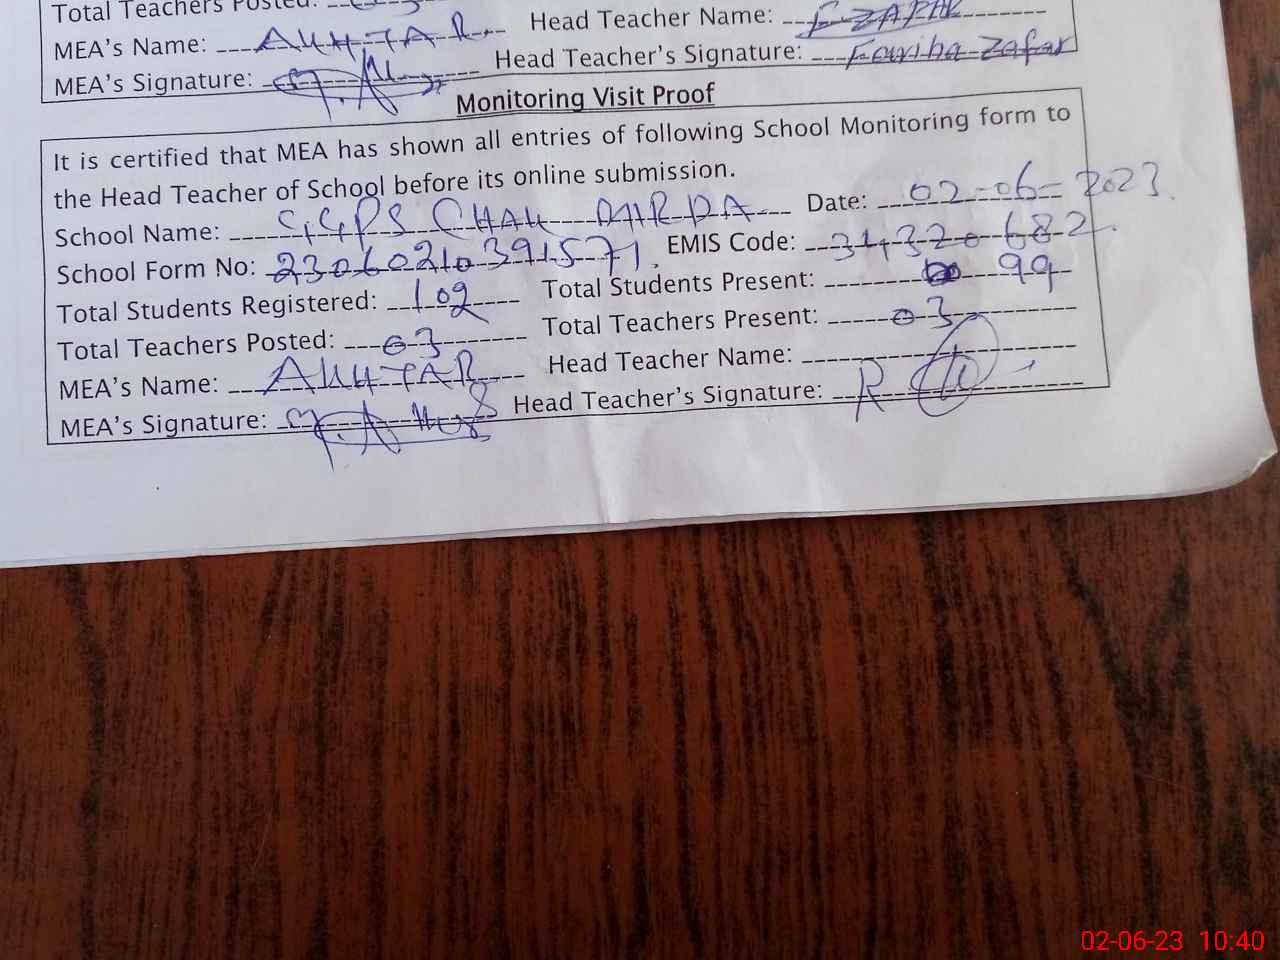 Total Teachers Posted: 03
Head Teacher Name: F ZAFAR
MEA's Name: AKHTAR
Head Teacher's Signature: Fariha Zafar
MEA's Signature:
Monitoring Visit Proof
It is certified that MEA has shown all entries of following School Monitoring form to
the Head Teacher of School before its online submission.
School Name: GGPS CHAK Date: 02-06-2023
School Form No: 23060210391571. EMIS Code: 34320682.
Total Students Registered: 109 Total Students Present: 99
Total Teachers Posted: 03 Total Teachers Present: 03
MEA's Name: AKHTAR Head Teacher Name:
MEA's Signature: Head Teacher's Signature:
02-06-23 10:40